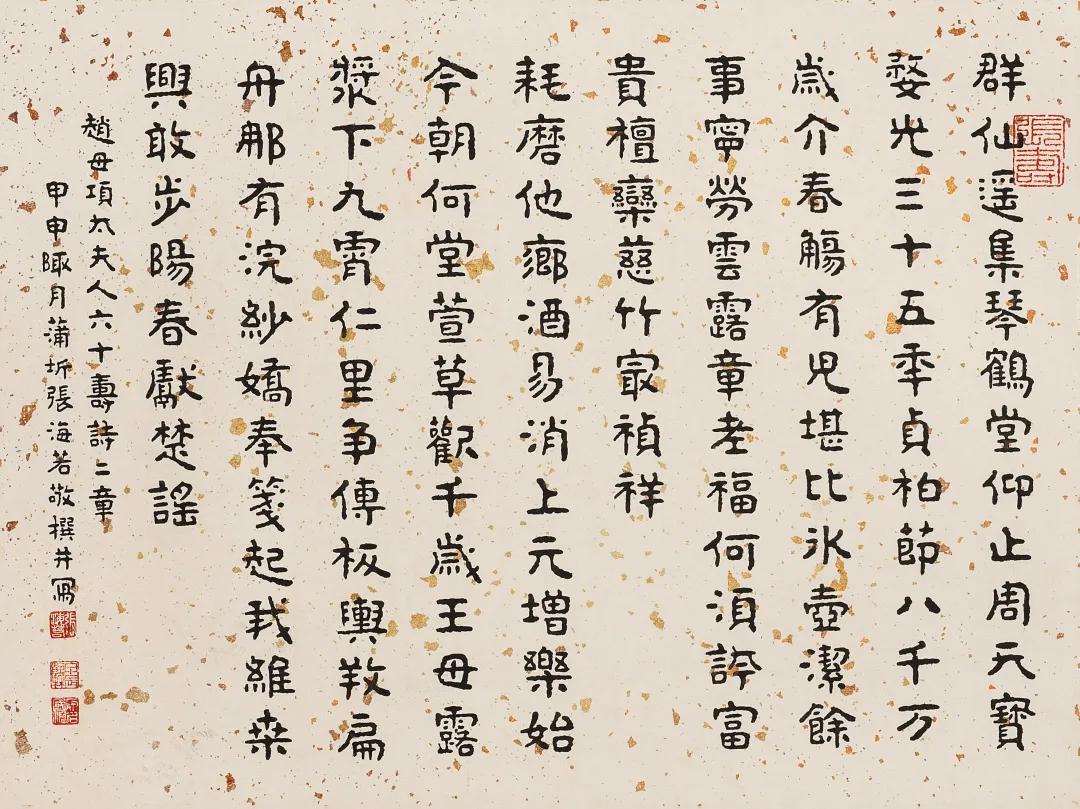 群仙遥集琴鶴堂仰止周天寶
婺光三十五年貞柏節八千万
歲介春觴有児堪比氷壺潔餘
事寧勞雲露章老福何須誇富
貴檀欒慈竹最禎祥
耗磨他鄉酒易消上元增樂始
今朝何堂萱草觀千歲王母露
漿下九霄仁里争傳板輿敎扁
舟那有浣紗嬌奉箋起我維桒
興敢步陽春獻楚謠
趙母項太夫人六十壽詩二章
甲申陬月蒲圻張海若敬撰并寫
張壽